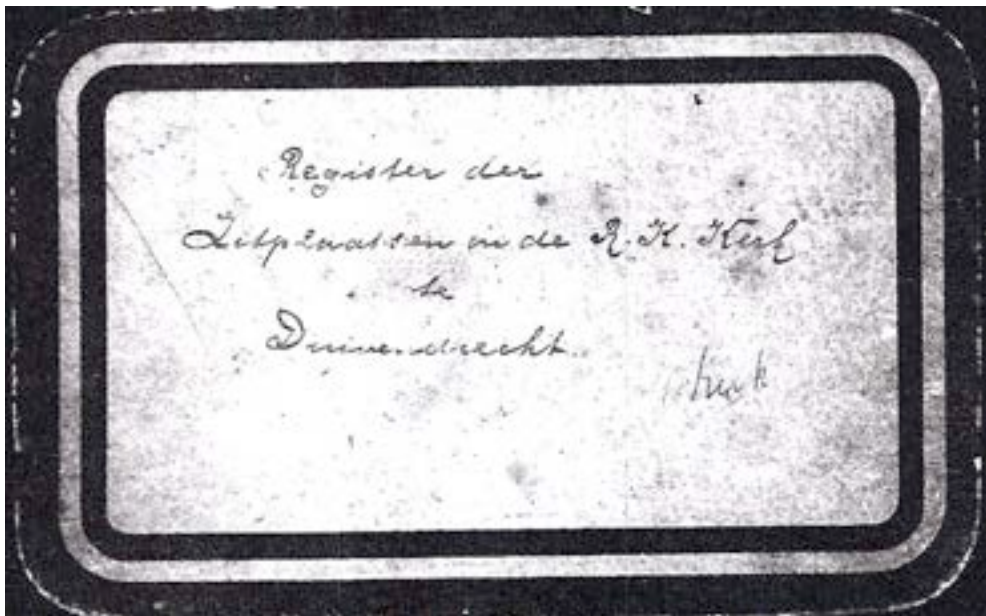 Register der
Zitplaatsen in de R. K. Kerk
te
Duivendrecht.